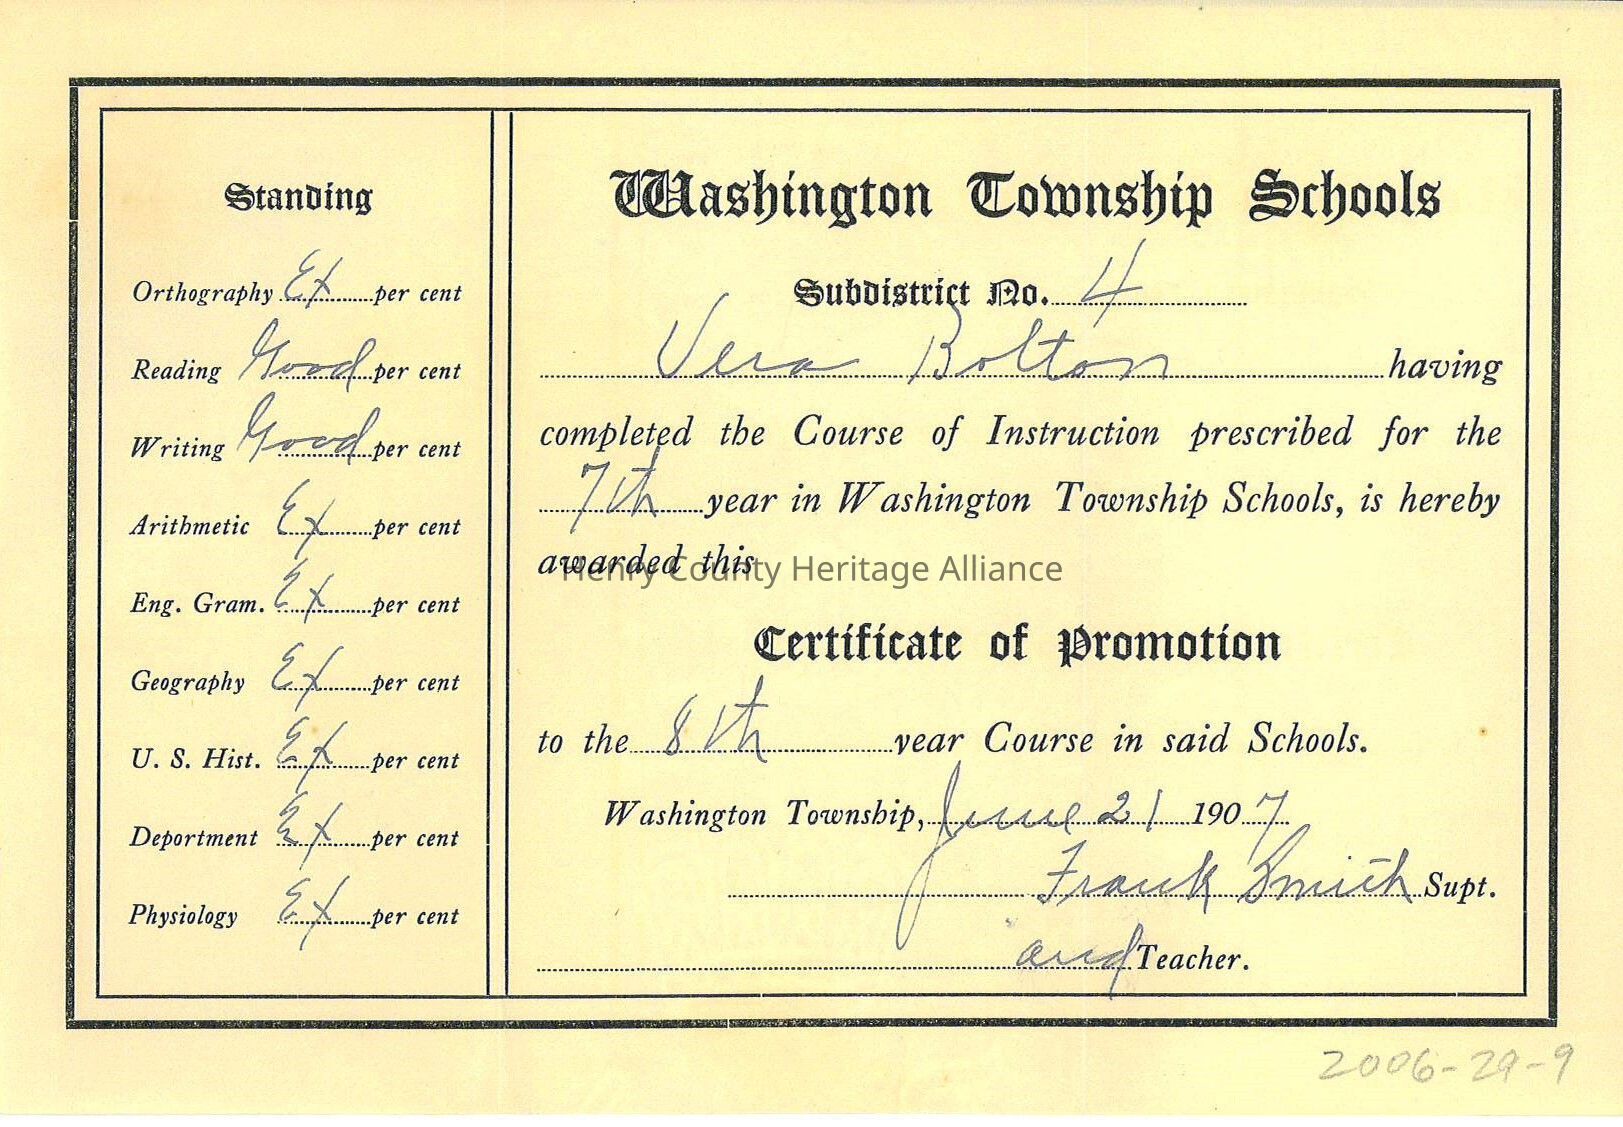 Standing
Orthography Ex per cent
Reading Good per cent
Writing Good per cent
Arithmetic Ex per cent
Eng. Gram. Ex per cent
Geography Ex per cent
U. S. Hist. Ex per cent
Deportment Ex per cent
Physiology Ex per cent
Washington Township Schools
Subdistrict No. 4
Vera Bolton having
completed the Course of Instruction prescribed for the
7th year in Washington Township Schools, is hereby
awarded this
Henry County Heritage Alliance
Certificate of Promotion
to the 8th year Course in said Schools.
Washington Township, June 21 1907
Frank Smith Supt.
and Teacher.
2006-29-9